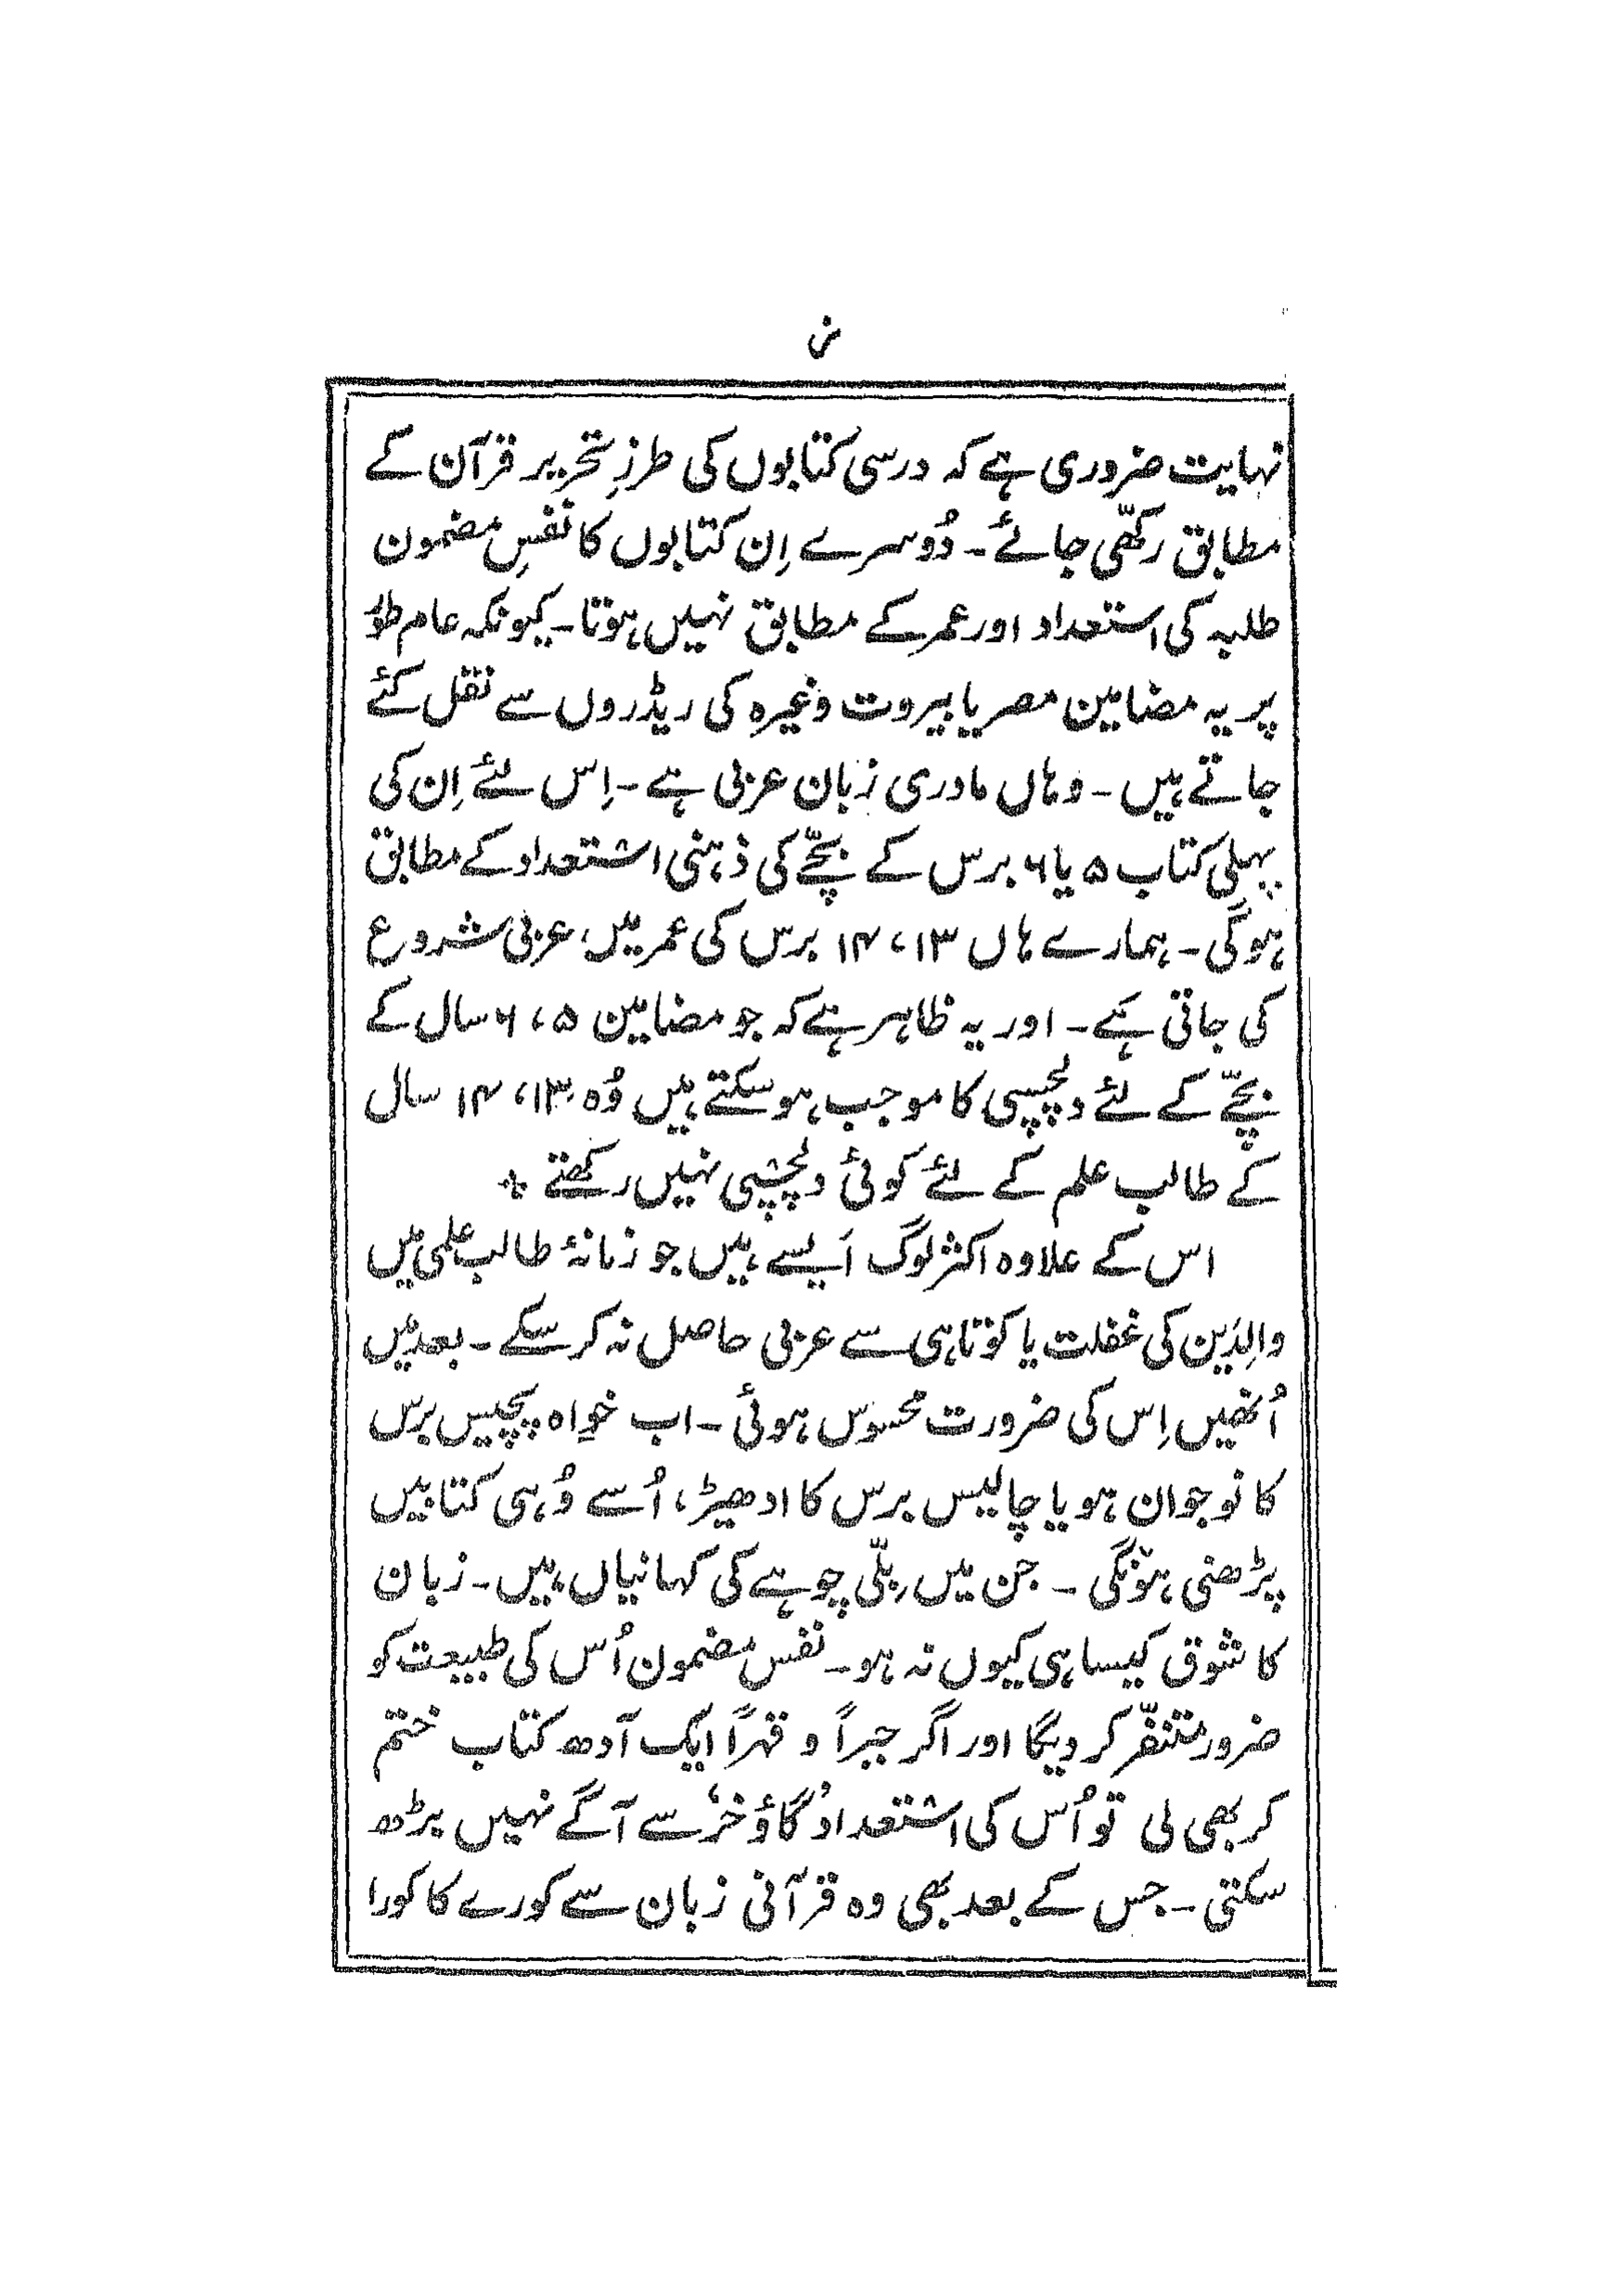 ز
نہایت ضروری ہے کہ درسی کتابوں کی طرزِ تحریر قرآن کے
مطابق رکھّی جائے۔ دُوسرے اِن کتابوں کا نفسِ مضمون
طلبہ کی استعداد اور عمر کے مطابق نہیں ہوتا۔ کیونکہ عام طور
پر یہ مضامین مصر یا بیروت وغیرہ کی ریڈروں سے نقل کئے
جاتے ہیں۔ وہاں مادری زبان عربی ہے۔ اِس لئے اِن کی
پہلی کتاب ۵ یا ۶ برس کے بچّے کی ذہنی استعداد کے مطابق
ہوگی۔ ہمارے ہاں ۱۳، ۱۴ برس کی عمر میں عربی شروع
کی جاتی ہَے۔ اور یہ ظاہر ہے کہ جو مضامین ۵، ۶ سال کے
بچّے کے لئے دلچسپی کا موجب ہو سکتے ہیں وُہ ۱۳، ۱۴ سال
کے طالب علم کے لئے کوئی دلچسپی نہیں رکھتے ٭
اس کے علاوہ اکثر لوگ اَیسے ہیں جو زمانۂ طالب علمی میں
والِدَین کی غفلت یا کوتاہی سے عربی حاصل نہ کر سکے۔ بعد میں
اُنھیں اِس کی ضرورت محسوس ہوئی۔ اب خواہ پچیس برس
کا نوجوان ہو یا چالیس برس کا ادھیڑ، اُسے وُہی کتابیں
پڑھنی ہونگی۔ جن میں بلّی چوہے کی کہانیاں ہیں۔ زبان
کا شوق کیسا ہی کیوں نہ ہو۔ نفس مضمون اُس کی طبیعت کو
ضرور متنفّر کر دیگا اور اگر جبراً و قہراً ایک آدھ کتاب ختم
کر بھی لی تو اُس کی استعداد ’گاؤ خر‘ سے آگے نہیں بڑھ
سکتی۔ جس کے بعد بھی وہ قرآنی زبان سے کورے کا کورا